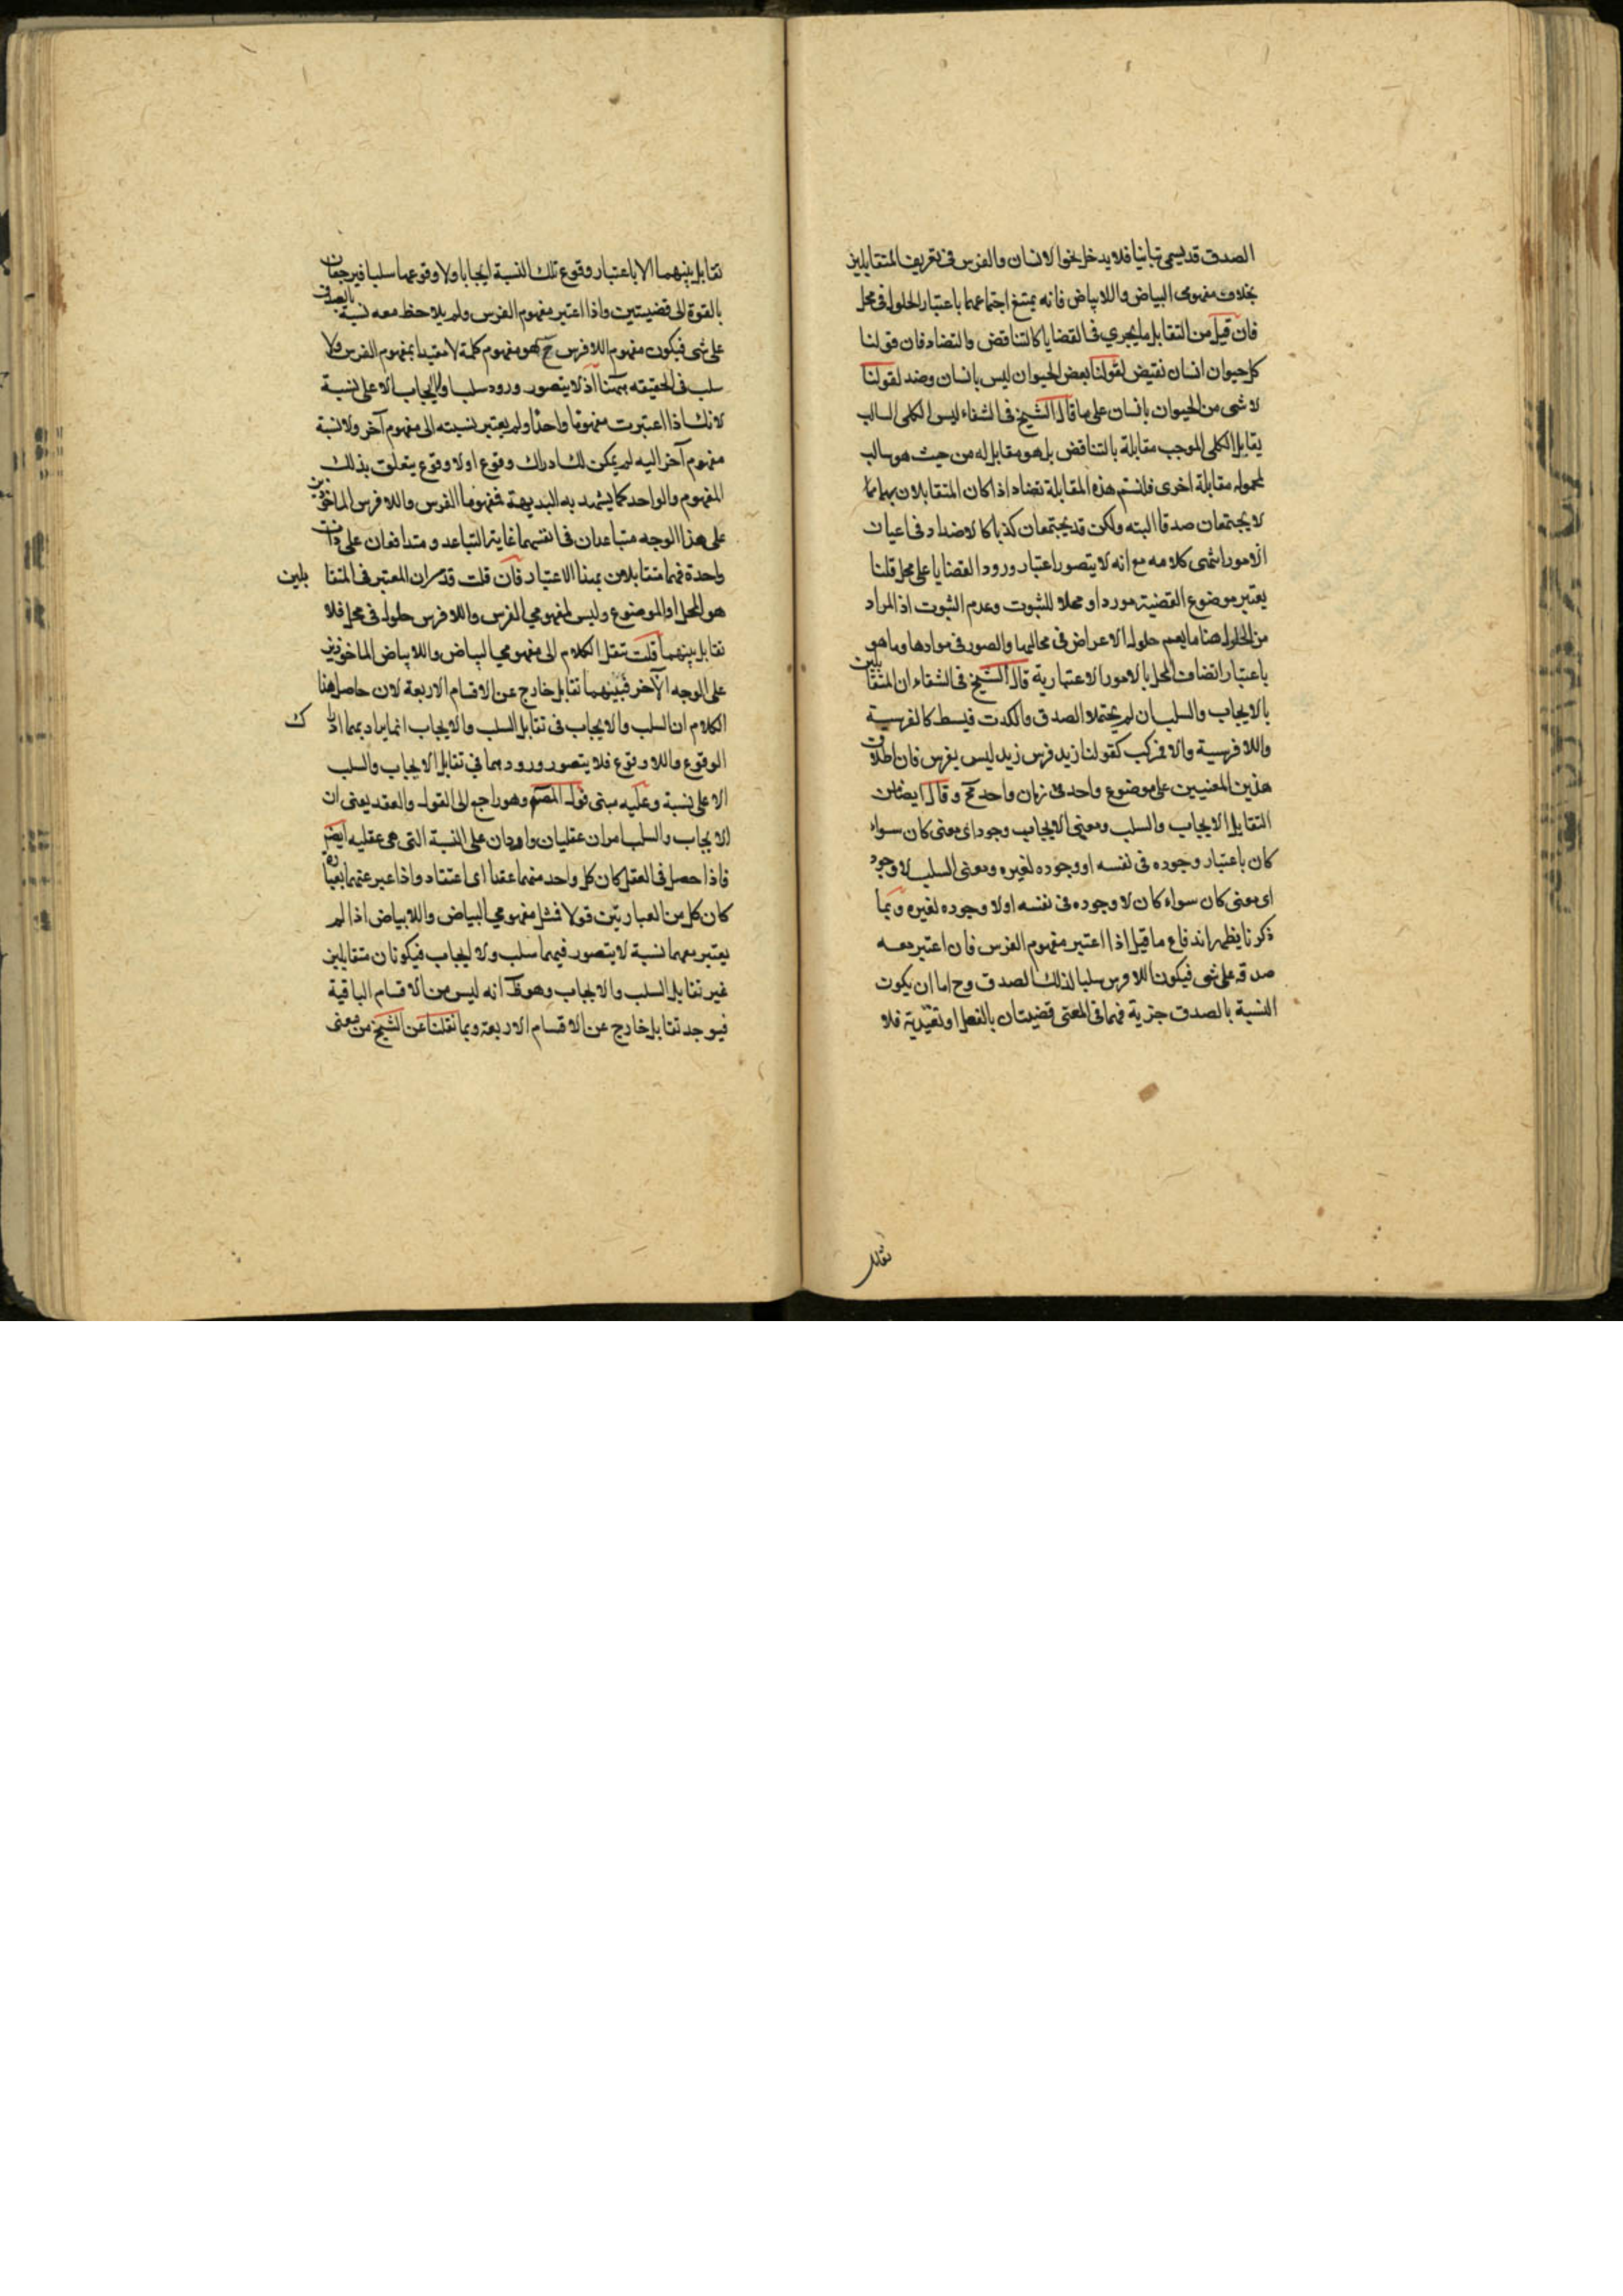 الصدق قد يسمى تباينا فلا يدخل نحوا لانسان والفرس فى تعريف المتقابلين
بخلاف مفهومى البياض واللابياض فانه يمتنع اجتماعهما باعتبار الحلول فى محل
فان قيل من التقابل ما يجرى فى القضايا كالتناقض والتضاد فان قولنا
كل حيوان انسان نقيض لقولنا بعض الحيوان ليس بانسان وضد لقولنا
لا شى من الحيوان بانسان على ما قال الشيخ فى الشفاء ليس الكلى السالب
يقابل الكلى الموجب مقابلة بالتناقض بل هو مقابل له من حيث هو سالب
لمحموله مقابلة اخرى فلنسم هذه المقابلة تضاد اذا كان المتقابلان بها مما
لا يجتمعان صدقا البته ولكن قد يجتمعان كذبا كالاضداد فى اعيان
الامور انتهى كلامه مع انه لا يتصور اعتبار ورود القضايا على محل قلنا
يعتبر موضوع القضية موردا ومحلا للثبوت وعدم الثبوت اذ المراد
من الحلول هنا ما يعم حلول الاعراض فى محالها والصور فى موادها وما هو
باعتبار اتصاف المحل بالامور الاعتبارية قال الشيخ فى الشفاء ان المتقابلين
بالايجاب والسلب ان لم يحتملا الصدق والكذب فبسيط كالفرسية
واللافرسية والا فمركب كقولنا زيد فرس زيد ليس بفرس فان اطلاق
هذين المعنيين على موضوع واحد فى زمان واحد مح وقال ايضا من
التقابل الايجاب والسلب ومعنى الايجاب وجود اى معنى كان سواء
كان باعتبار وجوده فى نفسه او وجوده لغيره ومعنى السلب لا وجود
اى معنى كان سواء كان لا وجوده فى نفسه او لا وجوده لغيره وبما
ذكرنا يظهر اندفاع ما قيل اذا اعتبر مفهوم الفرس فان اعتبر معه
صدقه على شى فيكون اللافرس سلبا لذلك الصدق وح اما ان يكون
النسبة بالصدق خبرية فهما فى المعنى قضيتان بالفعل او تقييدية فلا
تقابل
تقابل بينهما الا باعتبار وقوع تلك النسبة ايجابا ولا وقوعها سلبا فيرجعان
بالقوة الى قضيتين واذا اعتبر مفهوم الفرس ولم يلاحظ معه نسبة بالصدق
على شى فيكون مفهوم اللافرس ح هو مفهوم كلمة لا مقيدا بمفهوم الفرس ولا
سلب فى الحقيقه ههنا اذ لا يتصور ورود سلب او ايجاب الا على نسبة
لانك اذا اعتبرت مفهوما واحدا ولم يعتبر نسبته الى مفهوم آخر ولا نسبة
مفهوم آخر اليه لم يمكن لك ادراك وقوع او لا وقوع يتعلق بذلك
المفهوم والواحد كما يشهد به البديهة فمفهوما الفرس واللافرس الماخوذين
على هذا الوجه متباعدان فى انفسهما غاية التباعد ومتدافعان على ذات
واحدة فهما متقابلان بهذا الاعتبار فان قلت قد مر ان المعتبر فى المتقا بلين
هو المحل او الموضوع وليس لمفهومى الفرس واللافرس حلول فى محل فلا
تقابل بينهما قلت ننقل الكلام الى مفهومى البياض واللابياض الماخوذين
على الوجه الآخر فبينهما تقابل خارج عن الاقسام الاربعة لان حاصل هذا
الكلام ان السلب والايجاب فى تقابل السلب والايجاب انما يراد بهما ادراك
الوقوع واللاوقوع فلا يتصور ورودهما فى تقابل الايجاب والسلب
الا على نسبة وعليه مبنى قول المصنم وهو راجع الى القول والعقد يعنى ان
الايجاب والسلب امران عقليان واردان على النسبة التى هى عقليه ايضم
فاذا حصل فى العقل كان كل واحد منهما عقدا اى اعتقاد واذا عبر عنهما بعبارة
كان كل من العبارتين قولا فمثل مفهومى البياض واللابياض اذا لم
يعتبر معهما نسبة لا يتصور فيهما سلب ولا ايجاب فيكونان متقابلين
غير تقابل السلب والايجاب وهو ظ انه ليس من الاقسام الباقية
فيوجد تقابل خارج عن الاقسام الاربعة وبما نقلنا عن الشيخ من معنى